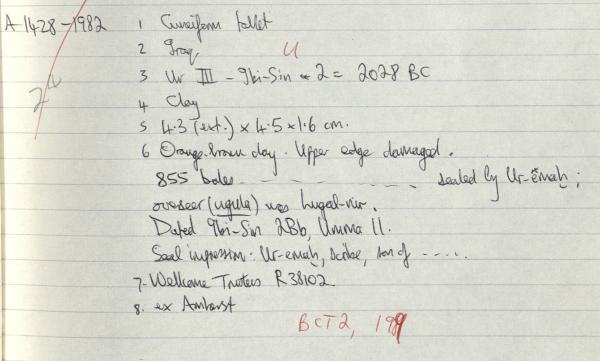 A 1428-1982
1 Cuneiform tablet
2 Iraq
U
3 Ur III - Ibi-Sin 2 = 2028 BC
4 Clay
5 4.3 (ext.) x 4.5 x 1.6 cm.
6 Orange-brown clay. Upper edge damaged.
855 bales - - - - - - - - sealed by Ur-emaḫ;
overseer (ugula) was lugal-nir.
Dated Ibi-Sin 2Bb, Umma 11.
Seal impression: Ur-emaḫ, scribe, son of .....
7. Wellcome Trustees R38102
8. ex Amherst
BCT2, 199